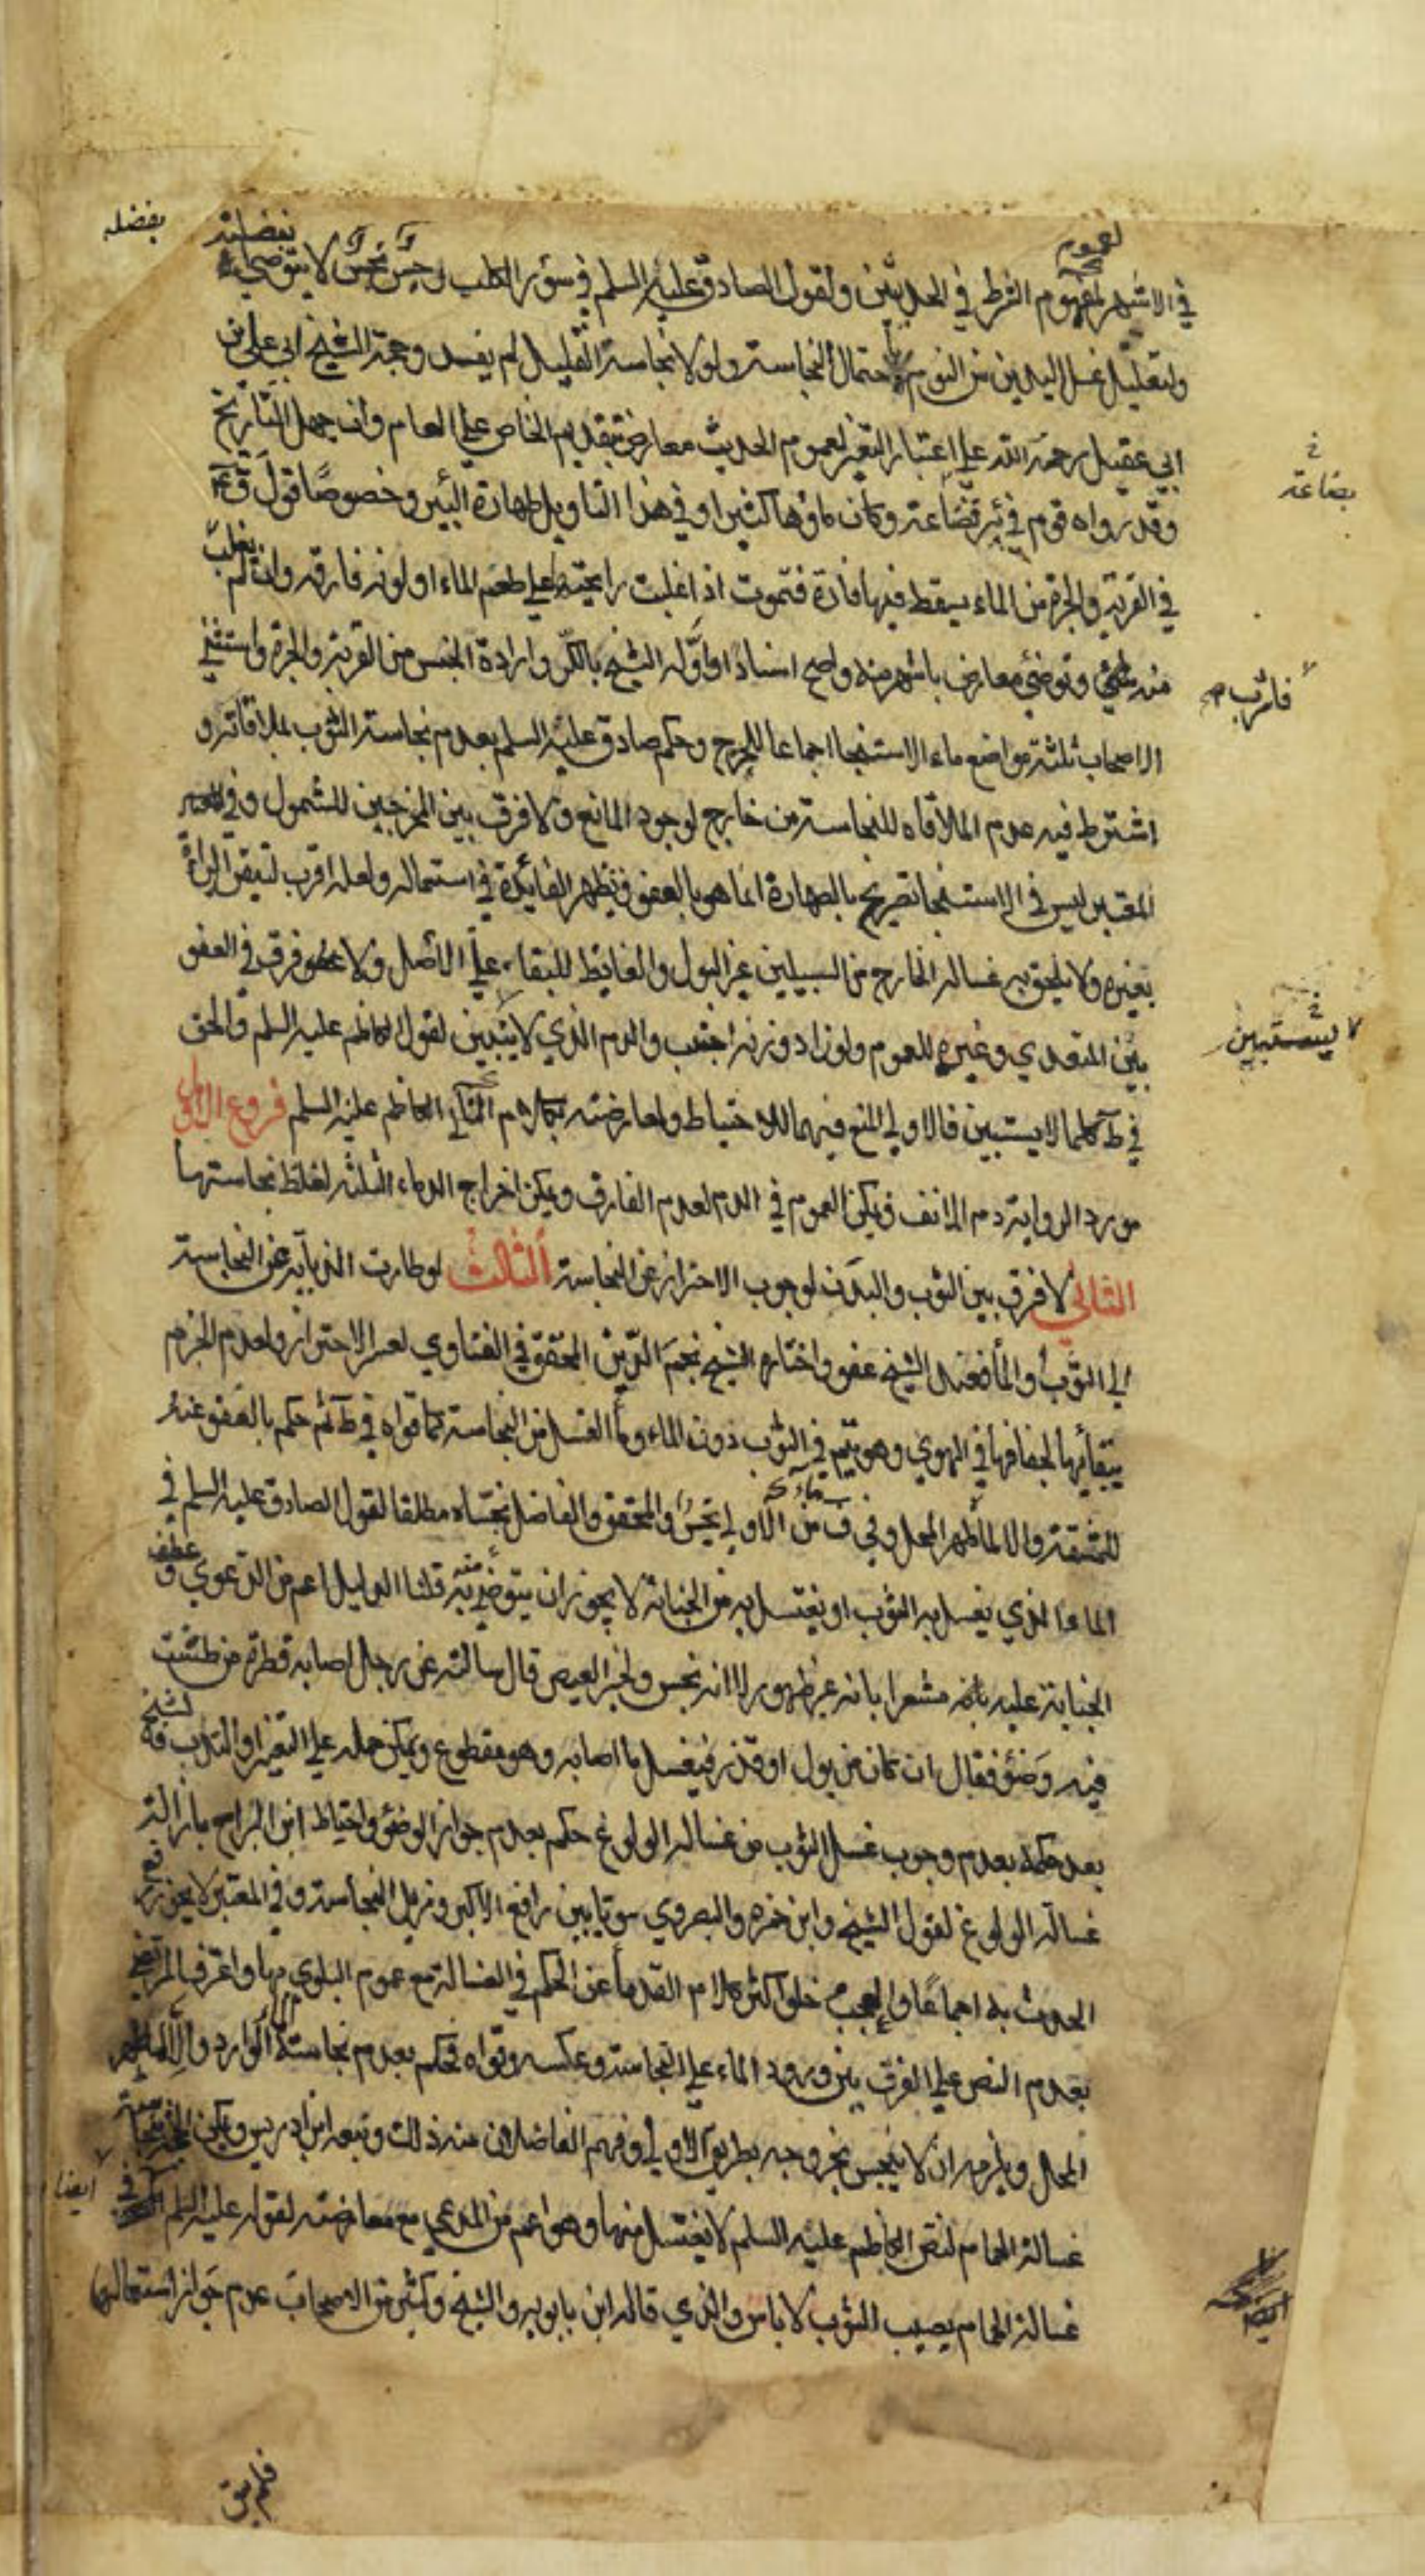 بفضله
لعموم
في الاشهر لمفهوم الشرط في الحديثين ولقول الصادق عليه السلم في سؤر الكلب رجس نجس لا يتوضى بفضله
ولتعليل غسل اليدين من النوم باحتمال النجاسة ولولا نجاسة القليل لم يفد وحجة الشيخ ابي علي بن
ابي عقيل رحمة الله علي اعتبار التغير لعموم الحديث معارض بتقديم الخاص علي العام وان جهل التاريخ
وقد رواه قوم في بئر قضاعة وكان ماؤها كثيرا وفي هذا التاويل طهارة البئر وخصوصًا قول
بضاعة
في القربة والجرة من الماء يسقط فيها فارة فتموت اذا غلبت رايحته علي طعم الماء او لونه فارقه وان لم يغلب
منه وتوضئ معارض باشهر منه واصح اسنادا واوله الشيخ بالكر وارادة الجنس من القربة والجرة واستثني
فاشرب
الاصحاب ثلثة مواضع ماء الاستنجا اجماعا للحرج وحكم صادق عليه السلم بعدم نجاسة الثوب بملاقاته و
اشترط فيه عدم الملاقاه للنجاسة من خارج لوجود المانع ولا فرق بين المخرجين للشمول وفي
المعتبر ليس في الاستنجا تصريح بالطهارة انما هو بالعفو وتظهر الفايدة في استعماله ولعله اقرب لتيقن البراة
بغيره ولا يلحق به غسالة الخارج من السبيلين غير البول والغايط للبقاء علي الاصل ولا فرق في العفو
بين المتعدي وغيره للعموم ولو زاد وزنه اجتنب والدم الذي لا يتبين لقول الكاظم عليه السلم والحق
لا يستبين
في ط كلما لا يستبين فالاولي المنع فيهما للاحتياط ولمعارضته بكلام الكاظم عليه السلم فروع الاول
مورد الرواية دم الانف ويمكن العموم في الدم لعدم الفارق ويمكن اخراج الدماء الثلثة لغلظ نجاستها
الثاني لا فرق بين الثوب والبدن لوجوب الاحتراز عن النجاسة الثالث لو طارت الذبابة عن النجاسة
الي الثوب او الماء فعند الشيخ عفو واختاره الشيخ نجم الدين المحقق في الفتاوي لعسر الاحتراز ولعدم الجزم
ببقائها لجفافها في الهوي وهو يتم في الثوب دون الماء وماء الغسل من النجاسة كما قواه في ط ثم حكم بالعفو عنه
للمشقة والا لما طهر المحل وفي ف من الاولي نجس والمحقق والفاضل نجساه مطلقا لقول الصادق عليه السلم في
الماء الذي يغسل به الثوب او يغتسل به من الجنابة لا يجوز ان يتوضى به قلنا الدليل اعم من الدعوي و عطف
الجنابة عليه بانه مشعرا بانه غير طهور لا انه نجس ولخبر العيص قال سالته عن رجل اصابه قطرة من طشت
فيه وضؤ فقال ان كان من بول او قذر فيغسل ما اصابه وهو مقطوع ويمكن حمله علي التغير او الندب
بعد حكمه بعدم وجوب غسل الثوب من غسالة الولوغ حكم بعدم جواز الوضؤ واحتياط ابن البراج بازالة
غسالة الولوغ لقول الشيخ وابن حمزه والبصروي سويا بين رافع الاكبر ومزيل النجاسة وفي المعتبر لا يجوز رفع
الحدث به اجماعا والعجب خلو اكثر كلام القدماء عن الحكم في الغسالة مع عموم البلوي بها واعترف المرتضي
بعدم النص علي الفرق بين ورود الماء علي النجاسة وعكسه وقواه فحكم بعدم نجاسة الماء الوارد والا لما طهر
المحل ويلزمه ان لا ينجس بخروجه بطريق الاولي وفهم الفاضلان منه ذلك وتبعه ابن ادريس
غسالة الحمام لنص الكاظم عليه السلم لا يغتسل منها وهو اعم من المدعي مع معارضته لقوله عليه السلم في
ايضا
غسالة الحمام يصيب الثوب لا باس والذي قاله ابن بابويه والشيخ وكثير من الاصحاب عدم جواز استعمالها